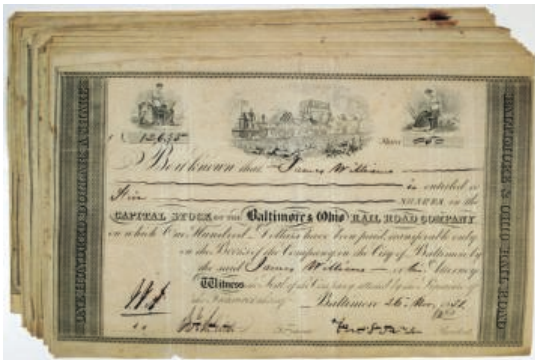 ONE HUNDRED DOLLARS A SHARE
12635 Share 5
Be it known that James Williams
is entitled to
Five SHARES in the
CAPITAL STOCK OF THE Baltimore & Ohio RAIL ROAD COMPANY
on which One Hundred Dollars have been paid, transferable only
on the Books of the Company in the City of Baltimore by
the said James Williams or his Attorney
Witness the Seal of the Company attested by the Signature of
the Treasurer thereof Baltimore 26 Nov.
Treasurer President
BALTIMORE & OHIO RAIL ROAD